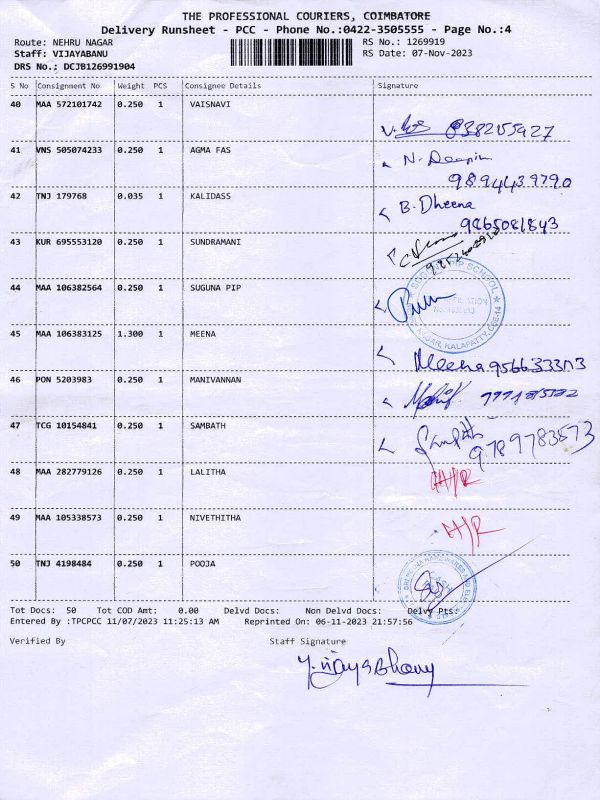 THE PROFESSIONAL COURIERS, COIMBATORE
Delivery Runsheet - PCC - Phone No.:0422-3505555 - Page No.:4
Route: NEHRU NAGAR
RS No.: 1269919
Staff: VIJAYABANU
RS Date: 07-Nov-2023
DRS No.: DCJB126991904
S No Consignment No Weight PCS Consignee Details Signature
40 MAA 572101742 0.250 1 VAISNAVI
41 VNS 505074233 0.250 1 AGMA FAS
9894439790
42 TNJ 179768 0.035 1 KALIDASS B. Dheena
9865081843
43 KUR 695553120 0.250 1 SUNDRAMANI
44 MAA 106382564 0.250 1 SUGUNA PIP
45 MAA 106383125 1.300 1 MEENA
Meena
46 PON 5203983 0.250 1 MANIVANNAN
47 TCG 10154841 0.250 1 SAMBATH
9789783573
48 MAA 282779126 0.250 1 LALITHA
49 MAA 105338573 0.250 1 NIVETHITHA
50 TNJ 4198484 0.250 1 POOJA
Tot Docs: 50 Tot COD Amt: 0.00 Delvd Docs: Non Delvd Docs: Delvy Pts:
Entered By :TPCPCC 11/07/2023 11:25:13 AM Reprinted On: 06-11-2023 21:57:56
Verified By Staff Signature